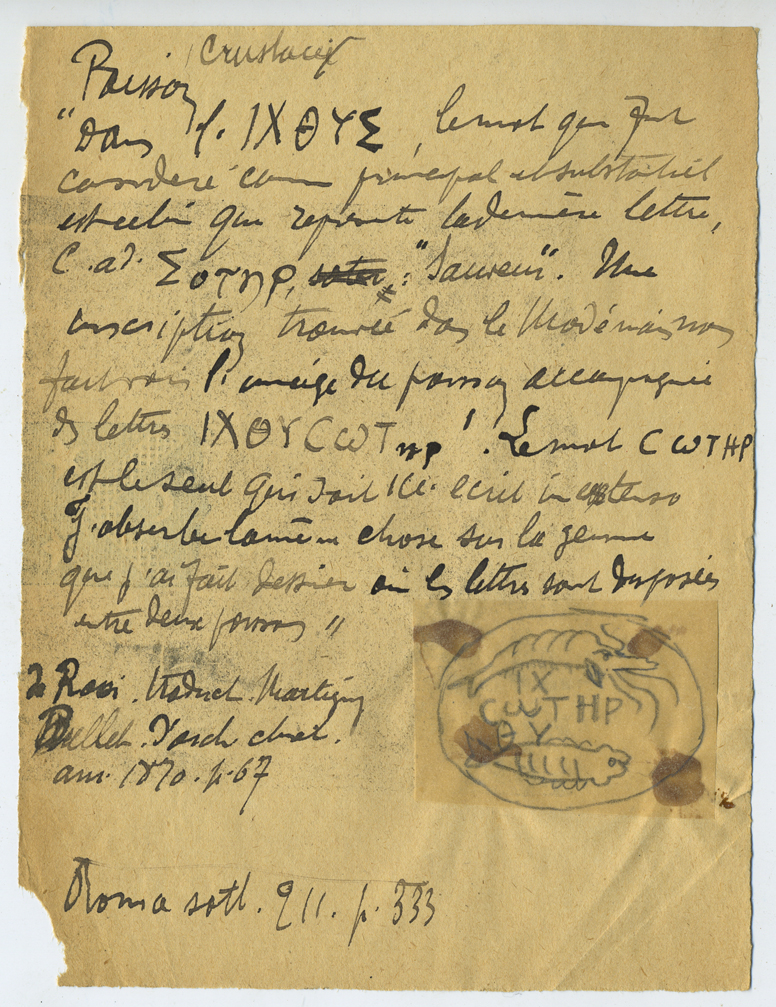 Poisson / Crustacé
"Dans l' ΙΧΘΥΣ, le mot qui fut
considéré comme principal et substantiel
est celui que représente la dernière lettre,
C. a d. Σοτηρ, soter : "Sauveur". Une
inscription trouvée dans le Modénais nous
fait voir l'image du poisson accompagnée
des lettres ΙΧΘΥCωΤηρ'. Le mot CωΤΗΡ
est le seul qui soit ici écrit in extenso
J'observe la même chose sur la gemme
que j'ai fait dessiner où les lettres sont disposées
entre deux poissons"
IX
CωTHP
ΘΥ
de Rossi. traduct. Martigny
Bullet. d'arch. chret.
ann. 1870. p. 67
Roma sott. p. 333